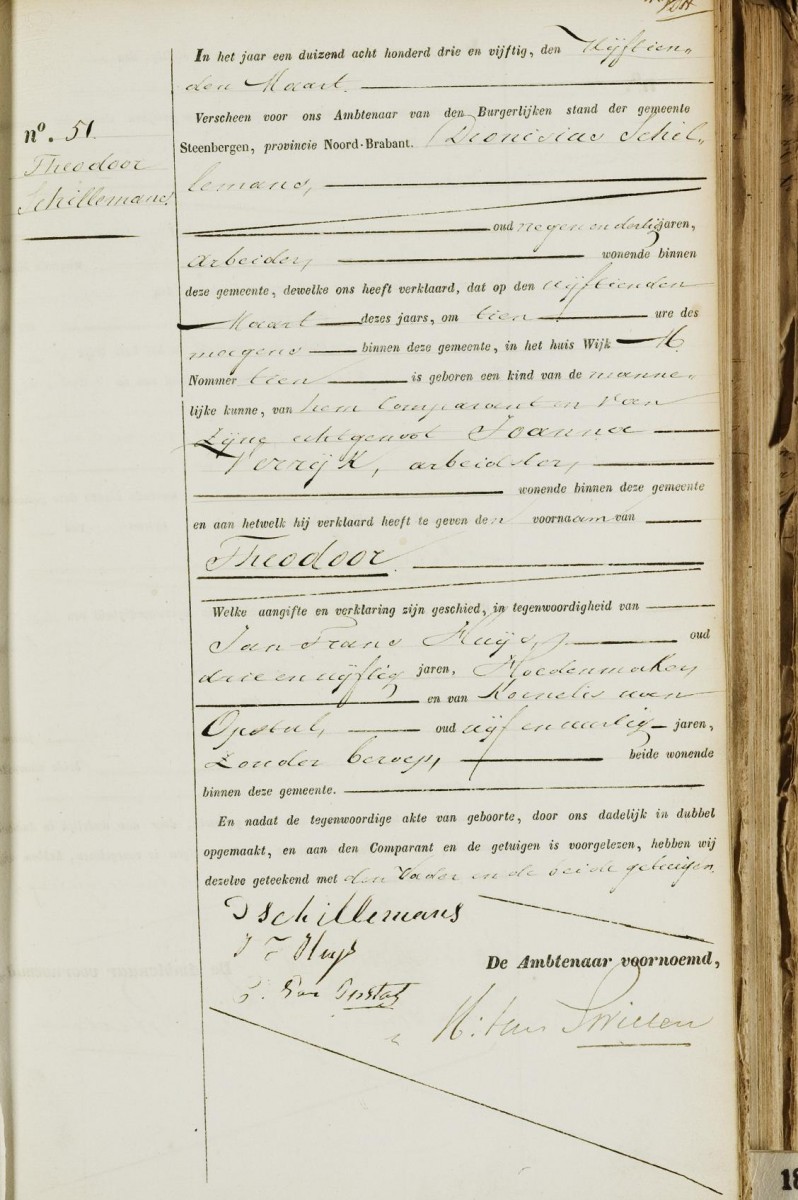 nº. 51.
Theodoor
Schillemans
In het jaar een duizend acht honderd drie en vijftig, den Vijftien„
den Maart.
Verscheen voor ons Ambtenaar van den Burgerlijken stand der gemeente
Steenbergen, provincie Noord-Brabant. Dionisius Schil„
lemans,
oud negen en dertig jaren,
arbeider, wonende binnen
deze gemeente, dewelke ons heeft verklaard, dat op den vijftienden
Maart dezes jaars, om tien ure des
morgens binnen deze gemeente, in het huis Wijk M.
Nommer tien is geboren een kind van de manne„
lijke kunne, van hem Comparant en van
Zijne echtgenoot Joanna
Verrijk, arbeidster,
wonende binnen deze gemeente
en aan hetwelk hij verklaard heeft te geven den voornaam van
Theodoor.
Welke aangifte en verklaring zijn geschied, in tegenwoordigheid van
Jan Frans Huijs, oud
drie en vijftig jaren, Hoedenmaker,
en van Kornelis van
Opstal, oud vijf en veertig jaren,
Zonder beroep, beide wonende
binnen deze gemeente.
En nadat de tegenwoordige akte van geboorte, door ons dadelijk in dubbel
opgemaakt, en aan den Comparant en de getuigen is voorgelezen, hebben wij
dezelve geteekend met den Vader en de beide getuigen.
D schillemans
J F Huijs
C. Van Opstal
De Ambtenaar voornoemd,
18